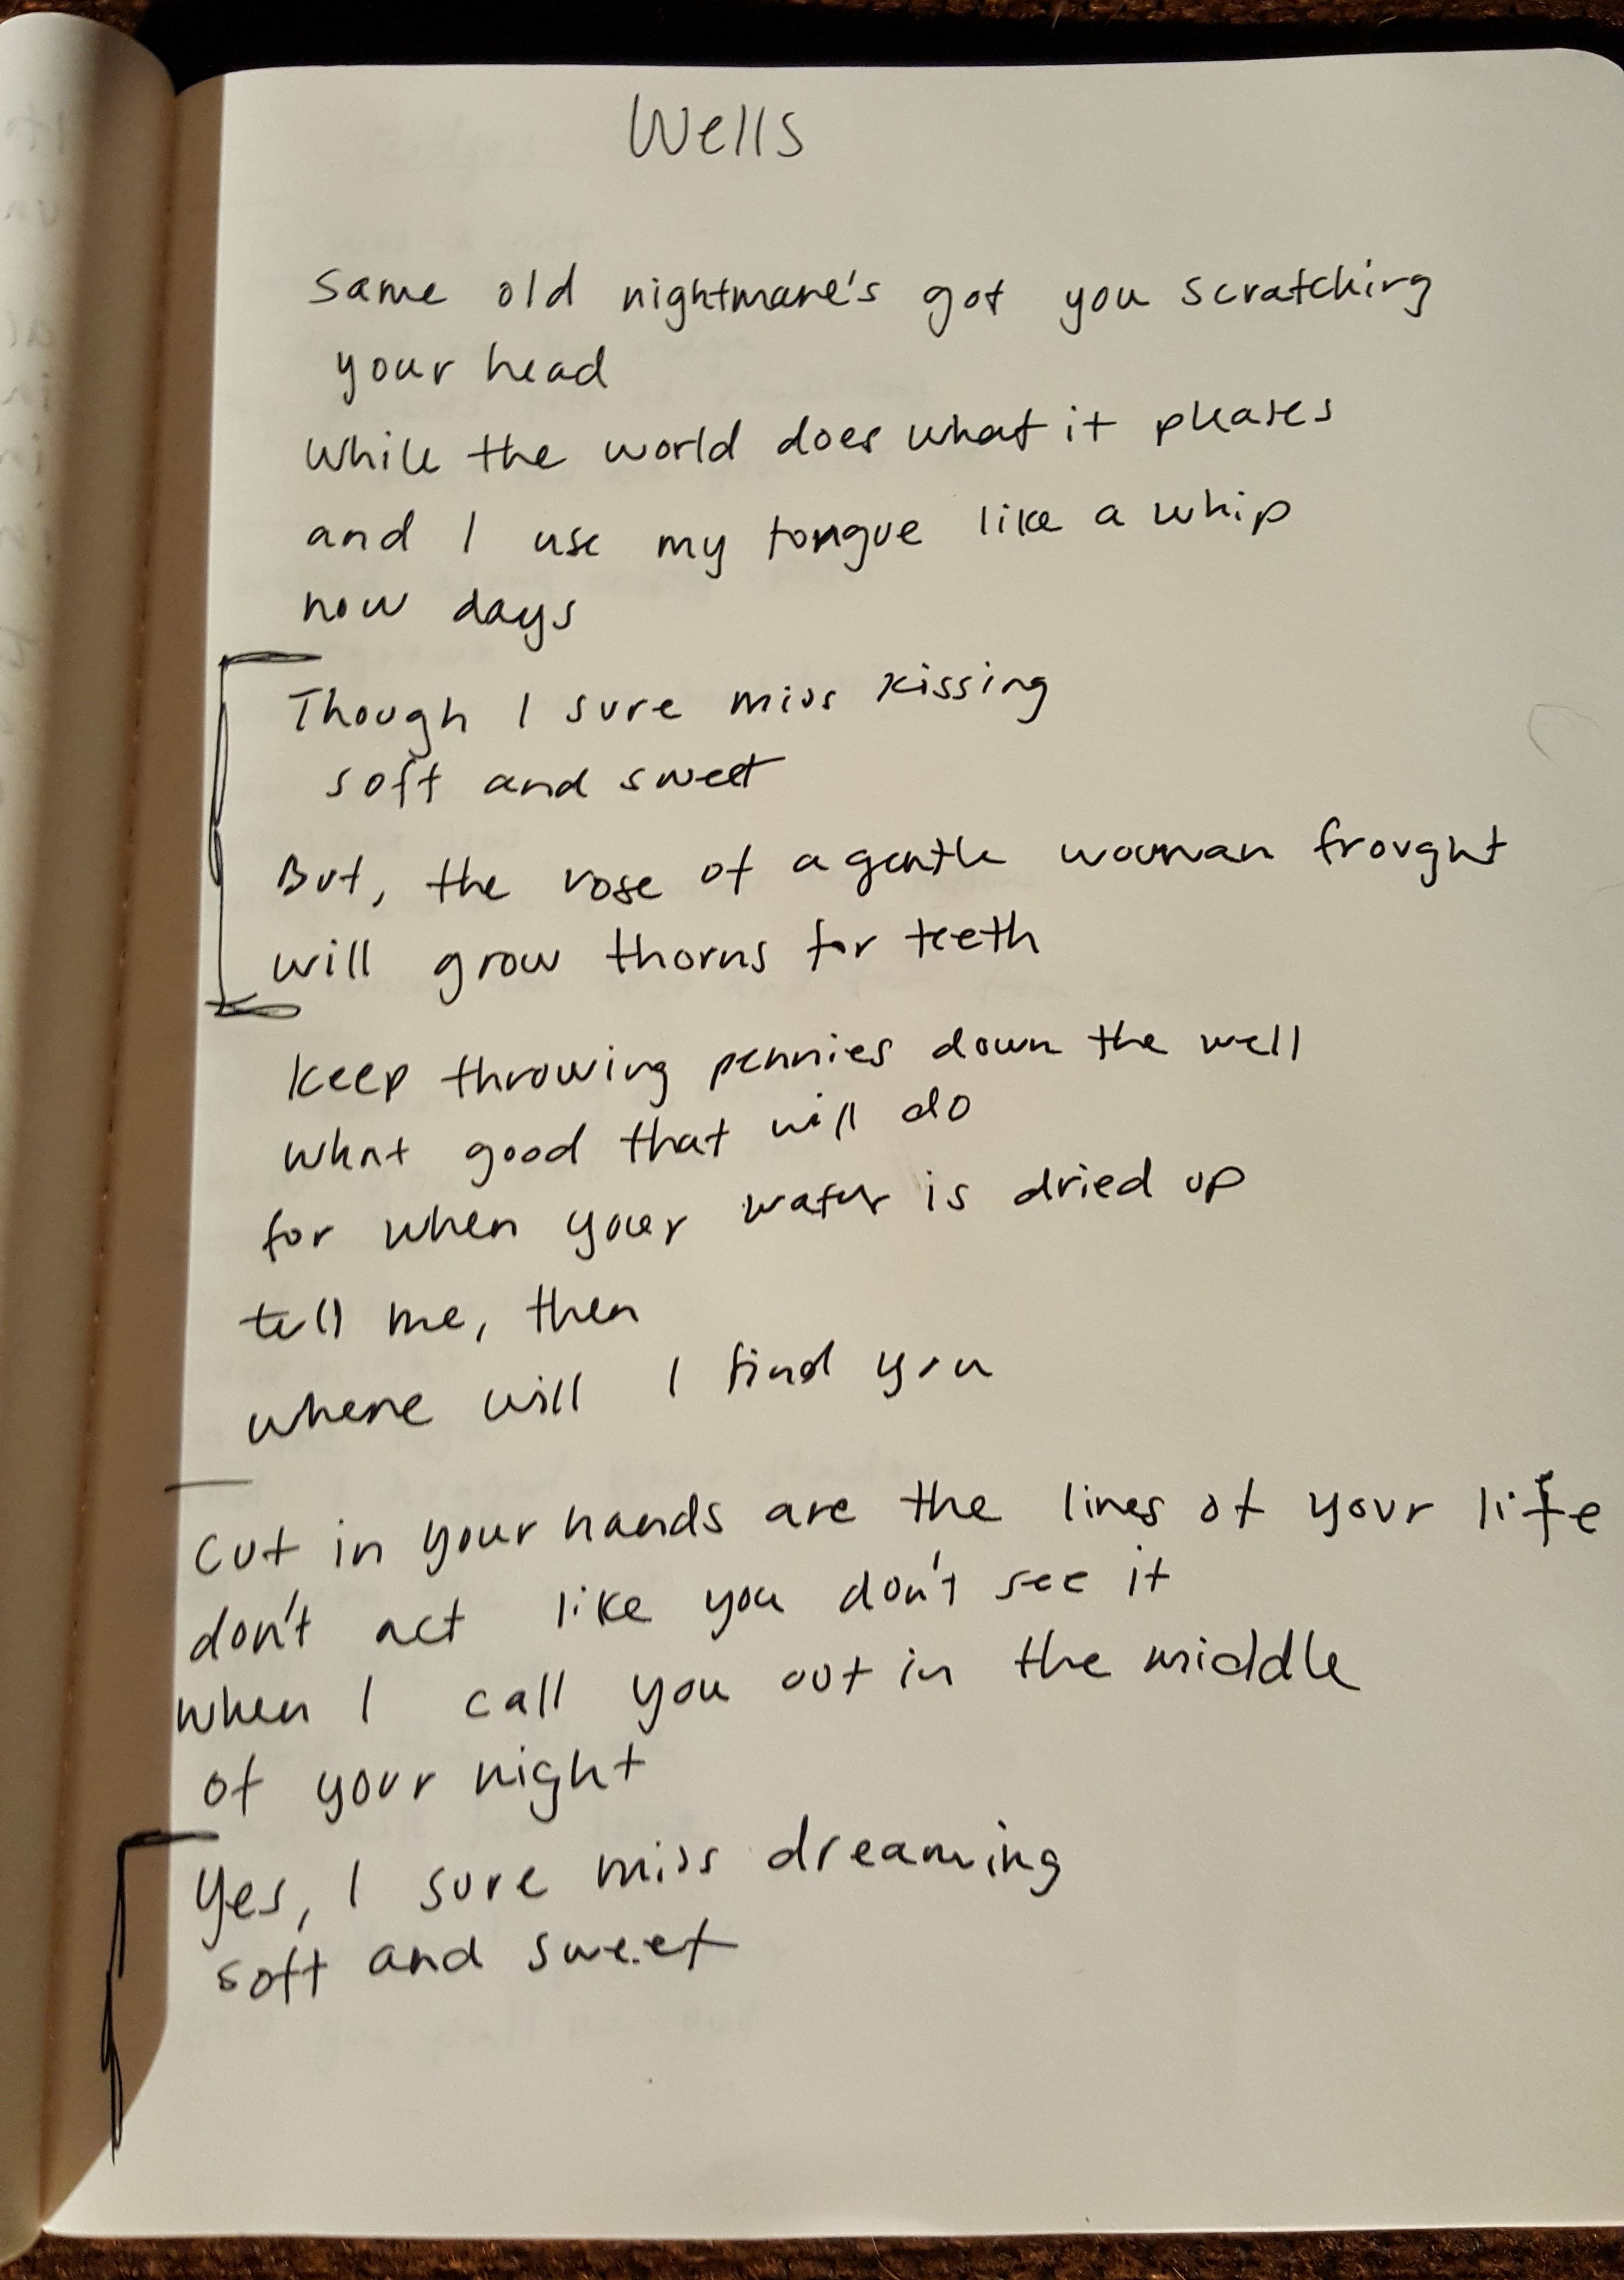 Wells
Same old nightmare's got you scratching
your head
while the world does what it pleases
and I use my tongue like a whip
now days
Though I sure miss kissing
soft and sweet
But, the rose of a gentle woman frought
will grow thorns for teeth
Keep throwing pennies down the well
what good that will do
for when your water is dried up
tell me, then
where will I find you
Cut in your hands are the lines of your life
don't act like you don't see it
when I call you out in the middle
of your night
Yes, I sure miss dreaming
soft and sweet